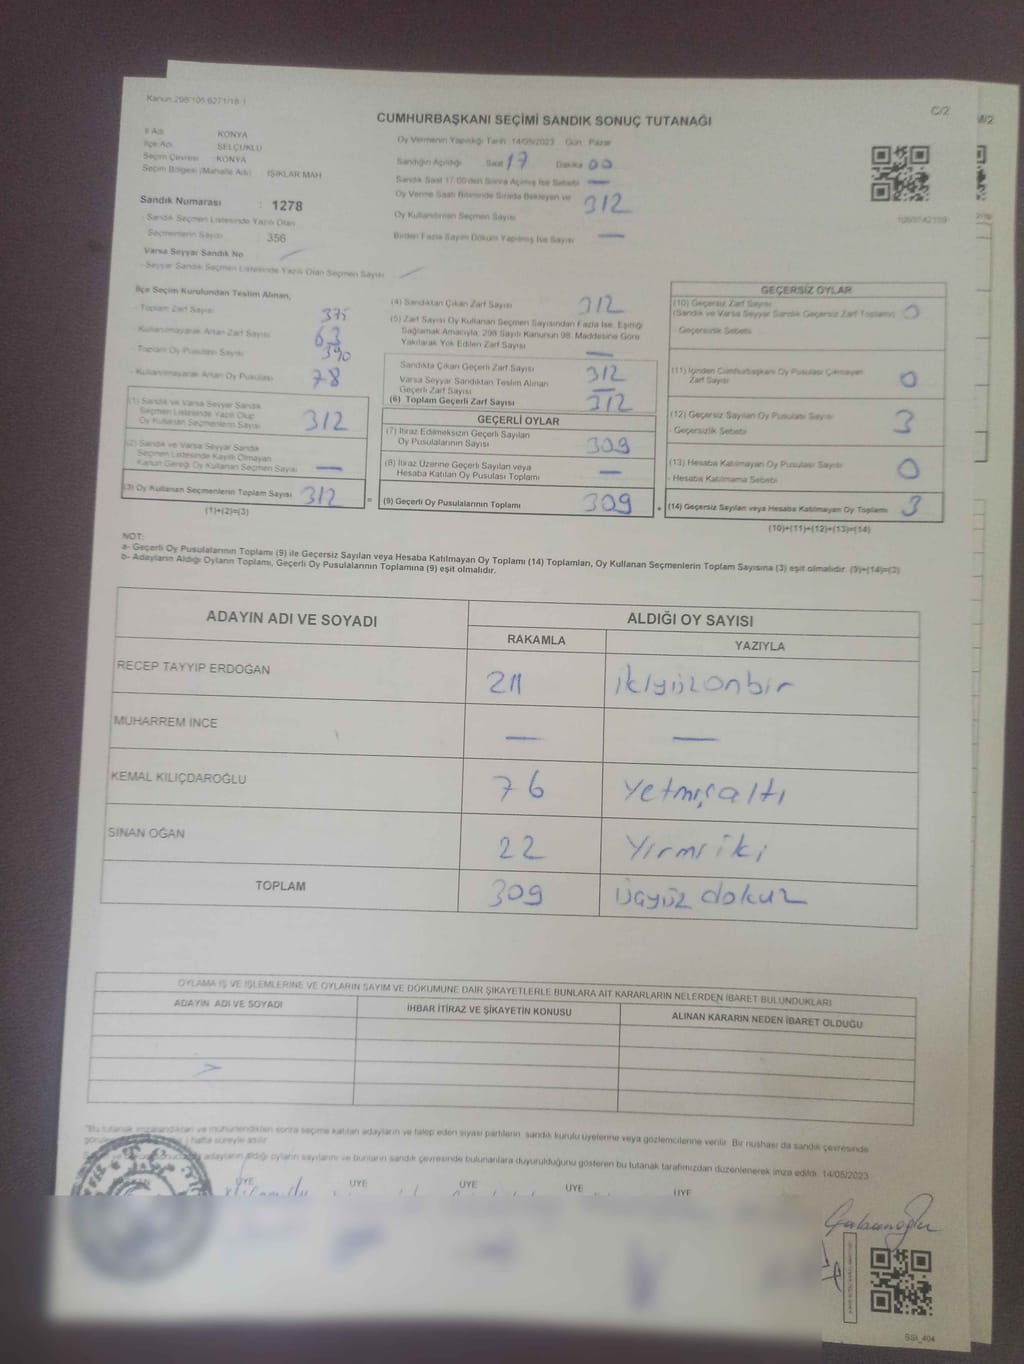 Kanun:298/105;6271/18-1
C/2
CUMHURBAŞKANI SEÇİMİ SANDIK SONUÇ TUTANAĞI
İl Adı KONYA
İlçe Adı SELÇUKLU
Seçim Çevresi : KONYA
Seçim Bölgesi (Mahalle Adı) : IŞIKLAR MAH
Sandık Numarası : 1278
- Sandık Seçmen Listesinde Yazılı Olan
Seçmenlerin Sayısı : 356
Varsa Seyyar Sandık No
- Seyyar Sandık Seçmen Listesinde Yazılı Olan Seçmen Sayısı
Oy Vermenin Yapıldığı Tarih :14/05/2023 Gün: Pazar
Sandığın Açıldığı Saat 17 Dakika 00
Sandık Saat 17:00'den Sonra Açılmış İse Sebebi —
Oy Verme Saati Bitiminde Sırada Bekleyen ve
Oy Kullandırılan Seçmen Sayısı 312
Birden Fazla Sayım Döküm Yapılmış İse Sayısı —
İlçe Seçim Kurulundan Teslim Alınan;
- Toplam Zarf Sayısı 375
- Kullanılmayarak Artan Zarf Sayısı 63
- Toplam Oy Pusulası Sayısı 390
- Kullanılmayarak Artan Oy Pusulası 78
(1) Sandık ve Varsa Seyyar Sandık
Seçmen Listesinde Yazılı Olup
Oy Kullanan Seçmenlerin Sayısı 312
(2) Sandık ve Varsa Seyyar Sandık
Seçmen Listesinde Kayıtlı Olmayan
Kanun Gereği Oy Kullanan Seçmen Sayısı —
(3) Oy Kullanan Seçmenlerin Toplam Sayısı 312
(1)+(2)=(3)
(4) Sandıktan Çıkan Zarf Sayısı 312
(5) Zarf Sayısı Oy Kullanan Seçmen Sayısından Fazla İse, Eşitliği
Sağlamak Amacıyla, 298 Sayılı Kanunun 98. Maddesine Göre
Yakılarak Yok Edilen Zarf Sayısı —
Sandıkta Çıkan Geçerli Zarf Sayısı 312
Varsa Seyyar Sandıktan Teslim Alınan
Geçerli Zarf Sayısı —
(6) Toplam Geçerli Zarf Sayısı 312
GEÇERLİ OYLAR
(7) İtiraz Edilmeksizin Geçerli Sayılan
Oy Pusulalarının Sayısı 309
(8) İtiraz Üzerine Geçerli Sayılan veya
Hesaba Katılan Oy Pusulası Toplamı —
= (9) Geçerli Oy Pusulalarının Toplamı 309
GEÇERSİZ OYLAR
(10) Geçersiz Zarf Sayısı
(Sandık ve Varsa Seyyar Sandık Geçersiz Zarf Toplamı) 0
- Geçersizlik Sebebi
(11) İçinden Cumhurbaşkanı Oy Pusulası Çıkmayan
Zarf Sayısı 0
(12) Geçersiz Sayılan Oy Pusulası Sayısı 3
- Geçersizlik Sebebi
(13) Hesaba Katılmayan Oy Pusulası Sayısı 0
- Hesaba Katılmama Sebebi
+ (14) Geçersiz Sayılan veya Hesaba Katılmayan Oy Toplamı 3
(10)+(11)+(12)+(13)=(14)
NOT:
a- Geçerli Oy Pusulalarının Toplamı (9) ile Geçersiz Sayılan veya Hesaba Katılmayan Oy Toplamı (14) Toplamları, Oy Kullanan Seçmenlerin Toplam Sayısına (3) eşit olmalıdır. (9)+(14)=(3)
b- Adayların Aldığı Oyların Toplamı, Geçerli Oy Pusulalarının Toplamına (9) eşit olmalıdır.
ADAYIN ADI VE SOYADI ALDIĞI OY SAYISI
RAKAMLA YAZIYLA
RECEP TAYYIP ERDOĞAN 211 ikiyüzonbir
MUHARREM İNCE — —
KEMAL KILIÇDAROĞLU 76 Yetmişaltı
SİNAN OĞAN 22 Yirmi iki
TOPLAM 309 Üçyüz dokuz
OYLAMA İŞ VE İŞLEMLERİNE VE OYLARIN SAYIM VE DÖKÜMÜNE DAİR ŞİKAYETLERLE BUNLARA AİT KARARLARIN NELERDEN İBARET BULUNDUKLARI
ADAYIN ADI VE SOYADI İHBAR İTİRAZ VE ŞİKAYETİN KONUSU ALINAN KARARIN NEDEN İBARET OLDUĞU
"Bu tutanak imzalandıktan ve mühürlendikten sonra seçime katılan adayların ve talep eden siyasi partilerin sandık kurulu üyelerine veya gözlemcilerine verilir. Bir nüshası da sandık çevresinde
hafta süreyle asılır.
adayların aldığı oyların sayılarını ve bunların sandık çevresinde bulunanlara duyurulduğunu gösteren bu tutanak tarafımızdan düzenlenerek imza edildi. 14/05/2023
ÜYE ÜYE ÜYE ÜYE ÜYE
SSI_404